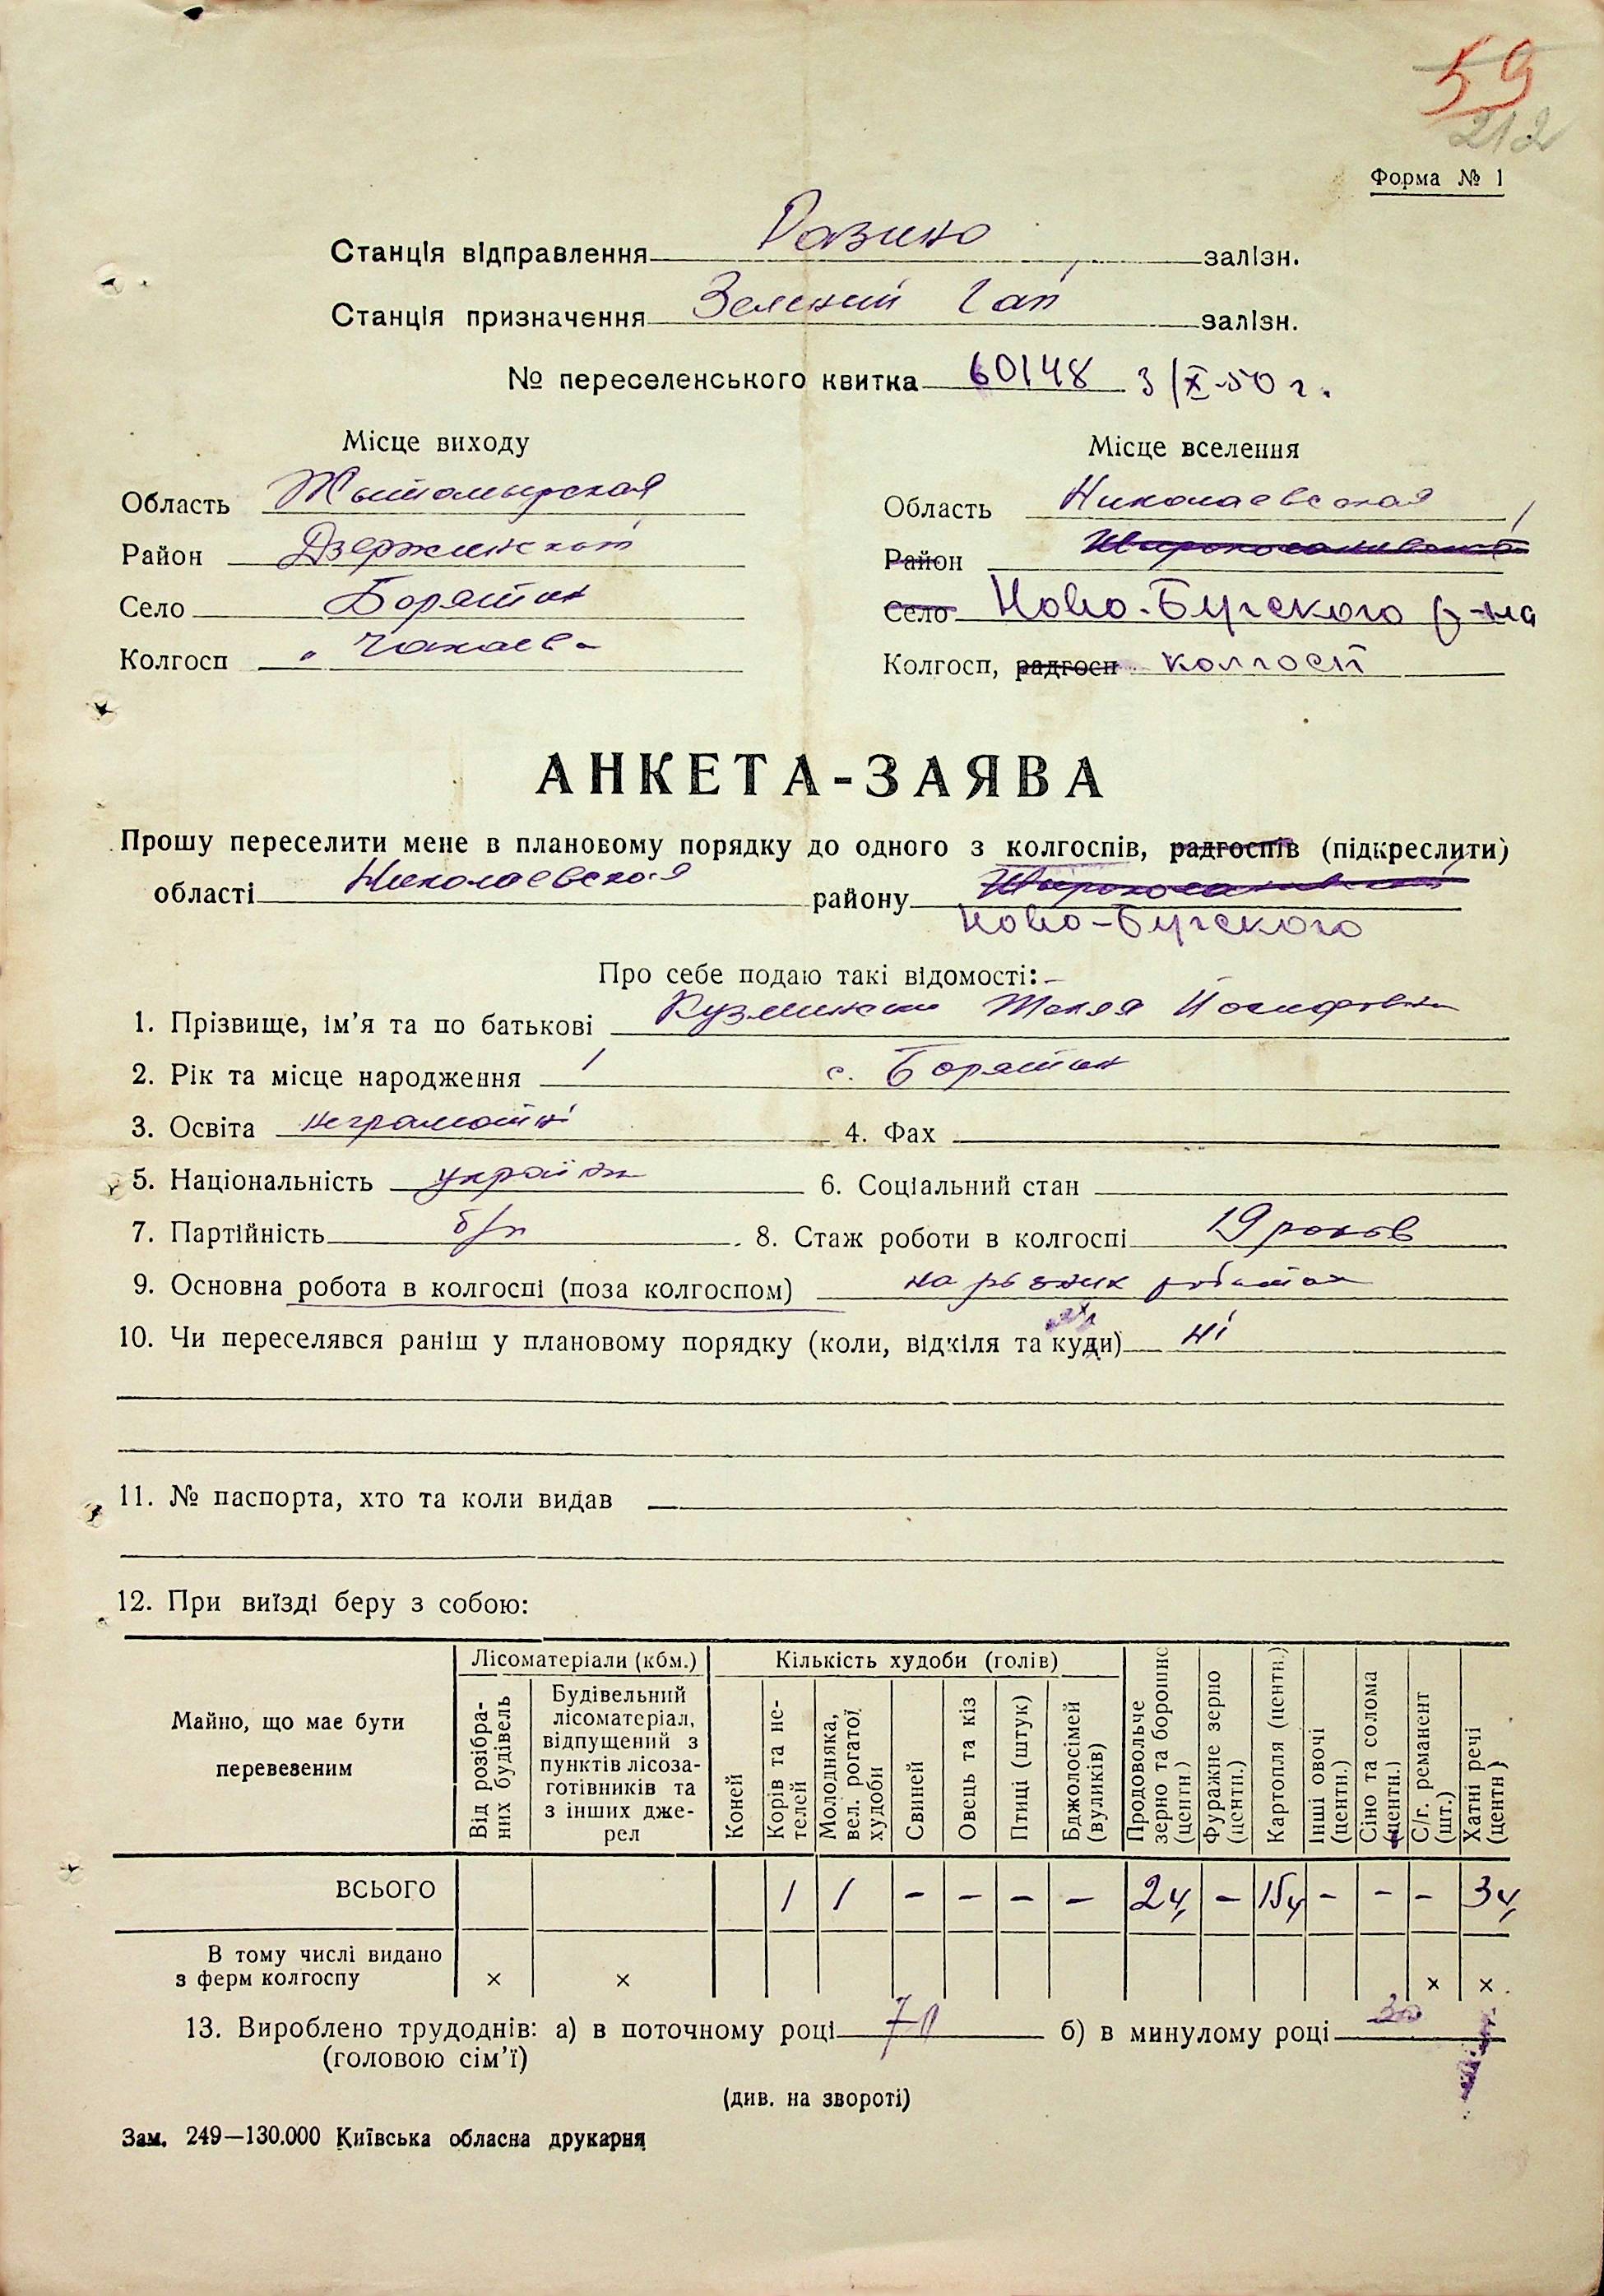 59
212
Форма № 1
Станція відправлення Разино залізн.
Станція призначення Зелений Гай залізн.
№ переселенського квитка 60148 3/X-50 г.
Місце виходу
Місце вселення
Область Жытомырская
Область Николаевская
Район Дзержинский
Район
Село Борятин
Село Ново-Бугского р-на
Колгосп Чапаева
Колгосп, радгосп колгосп
АНКЕТА-ЗАЯВА
Прошу переселити мене в плановому порядку до одного з колгоспів, радгоспів (підкреслити)
області Николаевская району
Ново-Бугского
Про себе подаю такі відомості:
1. Прізвище, ім’я та по батькові Текля Йосифовна
2. Рік та місце народження с. Борятин
3. Освіта 4. Фах
5. Національність 6. Соціальний стан
7. Партійність б/п 8. Стаж роботи в колгоспі 19 років
9. Основна робота в колгоспі (поза колгоспом) на різних роботах
10. Чи переселявся раніш у плановому порядку (коли, відкіля та куди) ні
11. № паспорта, хто та коли видав
12. При виїзді беру з собою:
Майно, що має бути перевезеним
Лісоматеріали (кбм.)
Кількість худоби (голів)
Від розібраних будівель
Будівельний лісоматеріал, відпущений з пунктів лісозаготівників та з інших джерел
Коней
Корів та нетелей
Молодняка, вел. рогатої худоби
Свиней
Овець та кіз
Птиці (штук)
Бджолосімей (вуликів)
Продовольче зерно та борошно (центн.)
Фуражне зерно (центн.)
Картопля (центн.)
Інші овочі (центн.)
Сіно та солома (центн.)
С/г. реманент (шт.)
Хатні речі (центн.)
ВСЬОГО 1 1 – – – – 2ц – 15ц – – – 3ц
В тому числі видано
з ферм колгоспу × × × ×
13. Вироблено трудоднів: а) в поточному році б) в минулому році 30
(головою сім’ї)
(див. на звороті)
Зам. 249—130.000 Київська обласна друкарня